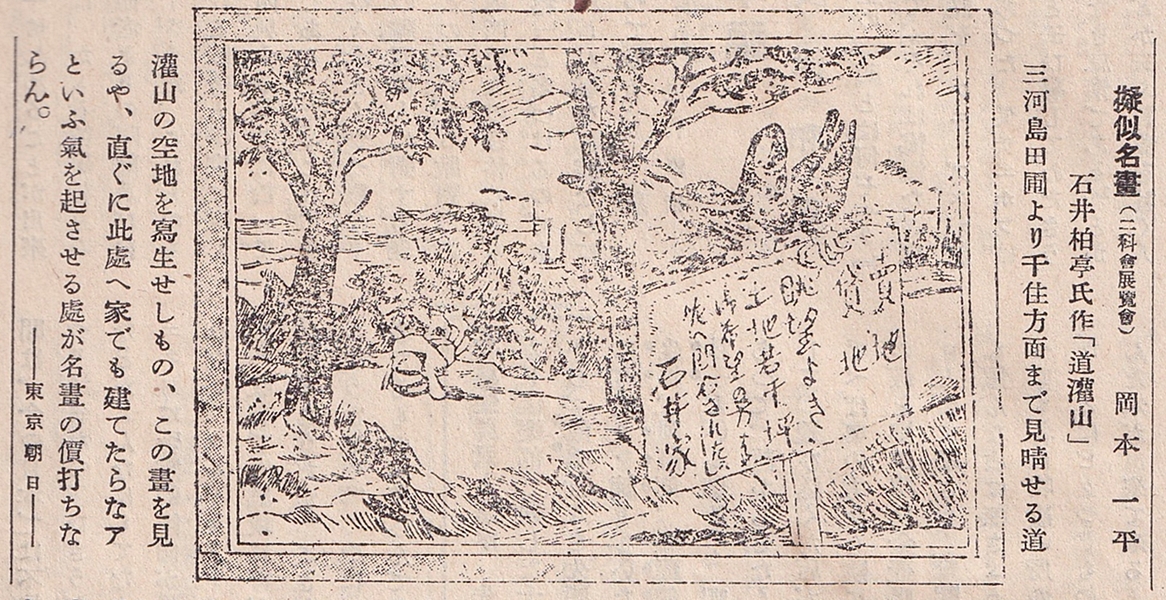 擬似名畫（二科會展覽會）　岡本一平
石井柏亭氏作「道灌山」
三河島田圃より千住方面まで見晴せる道
賣地
貸地
眺望よき
土地若干坪
御希望の方は
石井家
灌山の空地を寫生せしもの、この畫を見
るや、直ぐに此處へ家でも建てたらなア
といふ氣を起させる處が名畫の價打ちな
らん。
――東京朝日――